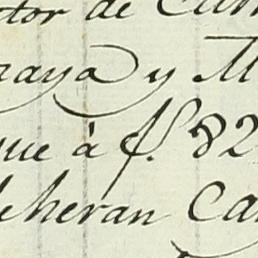 tor de Cum
raya y M
que à f. 82
leheran Ca